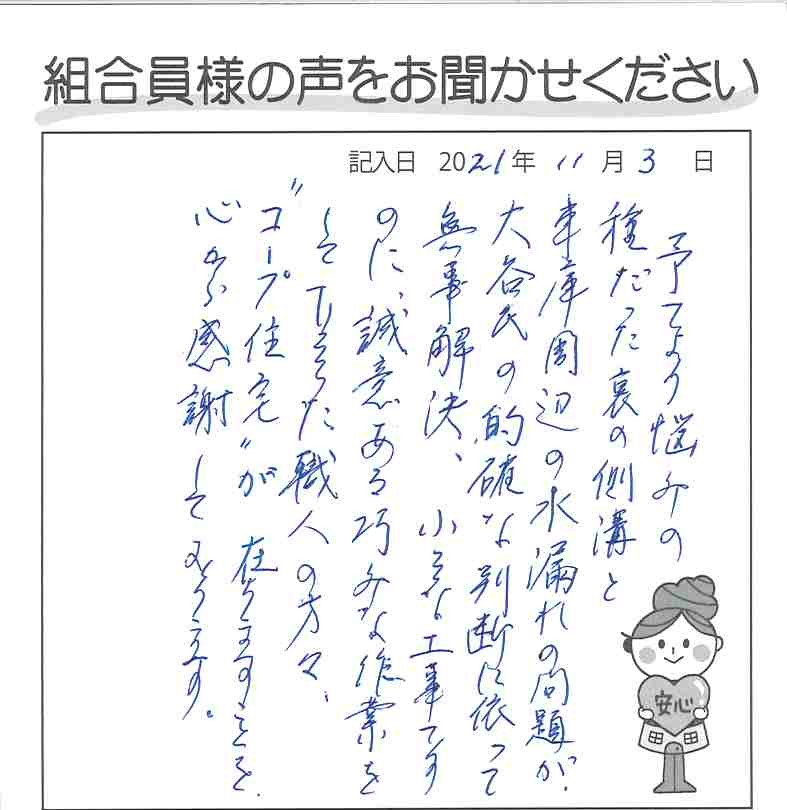 組合員様の声をお聞かせください
記入日 2021年 11月 3日
予てより悩みの
種だった裏の側溝と
車庫周辺の水漏れの問題が、
大谷氏の的確な判断に依って
無事解決、小さな工事です
のに、誠意ある巧みな作業を
して下さった職人の方々、
"コープ住宅"が在りますことを、
心から感謝しております。
安心